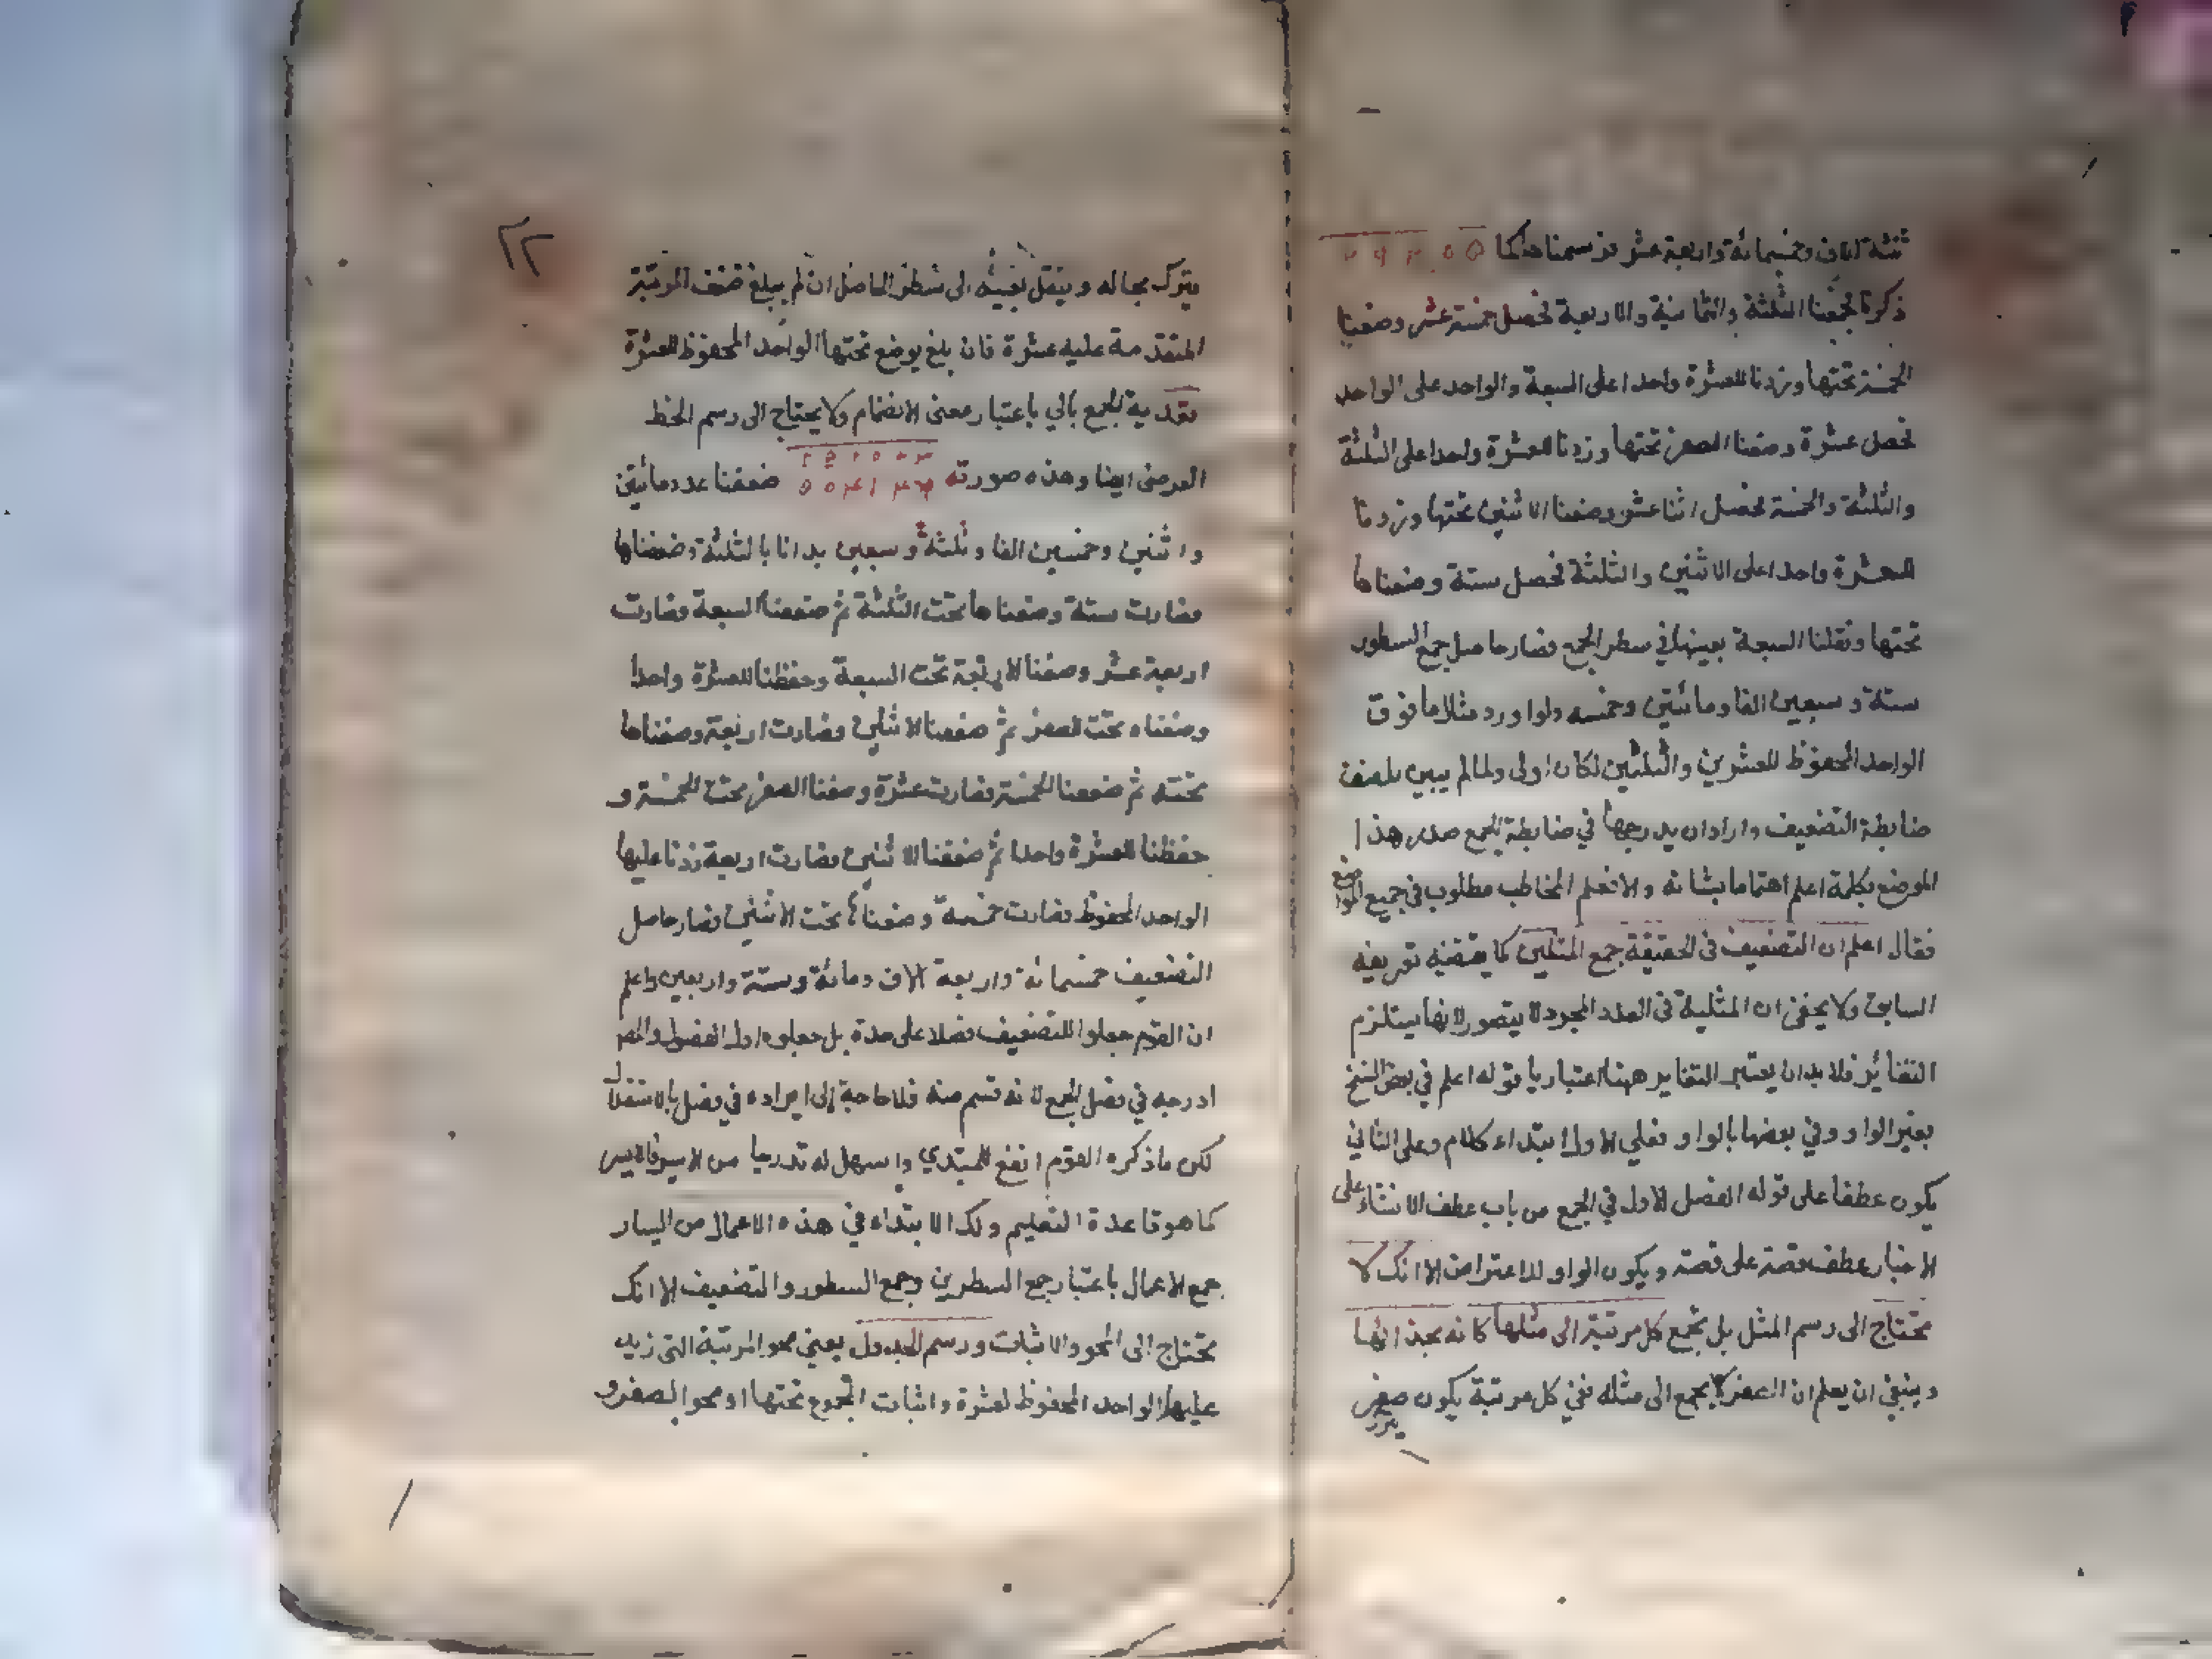 ثلثة الاف وخمسمائة واربعة عشر فرسمناها كما
ذكرنا فجمعنا الثلثة والثمانية والاربعة فحصل خمسة عشر وضعنا
الخمسة تحتها وزدنا للعشرة واحدا على السبعة والواحد على الواحد
فحصل عشرة وضعنا الصفر تحتها وزدنا للعشرة واحدا على الثلثة
والثلثة والخمسة فحصل اثنا عشر وضعنا الاثنين تحتها وزدنا
للعشرة واحدا على الاثنين والثلثة فحصل ستة وضعناها
تحتها ونقلنا السبعة بعينها في سطر الجمع فصار حاصل جمع السطور
ستة وسبعين الفا ومائتين وخمسه ولو اورد مثلا ما فوق
الواحد المحفوظ للعشرين والثلثين لكان اولى ولما لم يبين المصنف
ضابطة التضعيف واراد ان يدرجها في ضابطة الجمع صدر هذا
الموضع بكلمة اعلم اهتماما بشانه والا فعلم المخاطب مطلوب في جميع المواضع
فقال اعلم ان التضعيف في الحقيقة جمع المثلين كما يقتضيه تعريفه
السابق ولا يخفى ان المثلية في العدد المجرد لا يتصور لانها يستلزم
التغاير فلا بد ان يعتبر التغاير ههنا اعتباريا قوله اعلم في بعض النسخ
بغير الواو وفي بعضها بالواو فعلى الاول ابتداء كلام وعلى الثاني
يكون عطفا على قوله الفصل الاول في الجمع من باب عطف الانشاء على
الاخبار عطف قصة على قصة ويكون الواو للاعتراض الا انك لا
تحتاج الى رسم المثل بل تجمع كل مرتبة الى مثلها كانه بحذائها
وينبغي ان يعلم ان الصفر لا يجمع الى مثله ففي كل مرتبة يكون صفر
يترك
٢٢
يترك بحاله وينقل بعينه الى سطر الحاصل ان لم يبلغ ضعف المرتبة
المتقدمة عليه عشرة فان بلغ يوضع تحتها الواحد المحفوظ للعشرة
تعدية الجمع بالى باعتبار معنى الانضمام ولا يحتاج الى رسم الخط
العرضى ايضا وهذه صورته ضعفنا عدد مائتين
واثنين وخمسين الفا وثلثة وسبعين بدانا بالثلثة وضعفناها
فصارت ستة وضعناها تحت الثلثة ثم ضعفنا السبعة فصارت
اربعة عشر وضعنا الاربعة تحت السبعة وحفظنا للعشرة واحدا
وضعناه تحت الصفر ثم ضعفنا الاثنين فصارت اربعة وضعناها
تحته ثم ضعفنا الخمسة فصارت عشرة وضعنا الصفر تحت الخمسة و
حفظنا للعشرة واحدا ثم ضعفنا الاثنين فصارت اربعة زدنا عليها
الواحد المحفوظ فصارت خمسة وضعناها تحت الاثنين فصار حاصل
التضعيف خمسمائة واربعة الاف ومائة وستة واربعين واعلم
ان القوم جعلوا للتضعيف فصلا على حدة بل جعلوه اول الفصول والمص
ادرجه في فصل الجمع لانه قسم منه فلا حاجة الى ايراده في فصل بالاستقلال
لكن ما ذكره القوم انفع للمبتدي واسهل له تدرجا من الايسر فالايسر
كما هو قاعدة التعليم ولك الابتداء في هذه الاعمال من اليسار
جمع الاعمال باعتبار جمع السطرين وجمع السطور والتضعيف الا انك
تحتاج الى المحو والاثبات ورسم الجدول يعني محو المرتبة التي زيد
عليها الواحد المحفوظ لعشرة واثبات المجموع تحتها او محو الصفر و